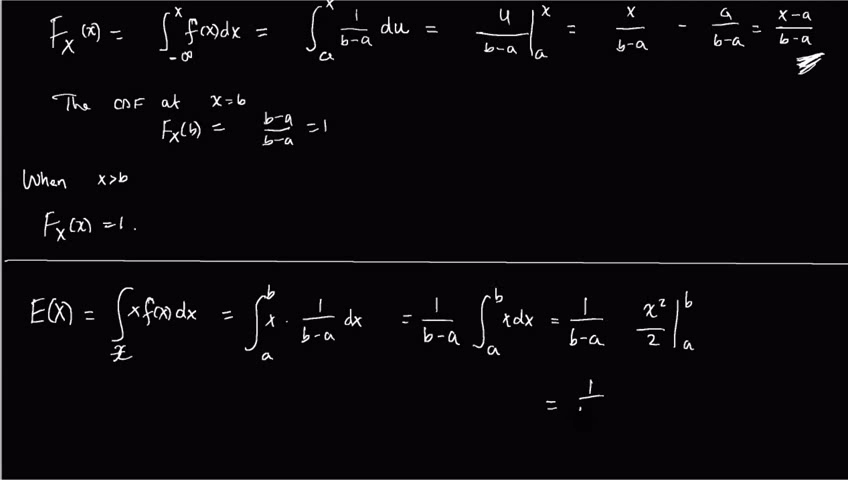 F_X(x) = ∫_{-∞}^{x} f(x)dx = ∫_{a}^{x} 1/(b-a) du = u/(b-a) |_{a}^{x} = x/(b-a) - a/(b-a) = (x-a)/(b-a)
The CDF at x=b
F_X(b) = (b-a)/(b-a) = 1
When x>b
F_X(x) = 1.
E(X) = ∫_{x} x f(x)dx = ∫_{a}^{b} x · 1/(b-a) dx = 1/(b-a) ∫_{a}^{b} x dx = 1/(b-a) x²/2 |_{a}^{b}
= 1/